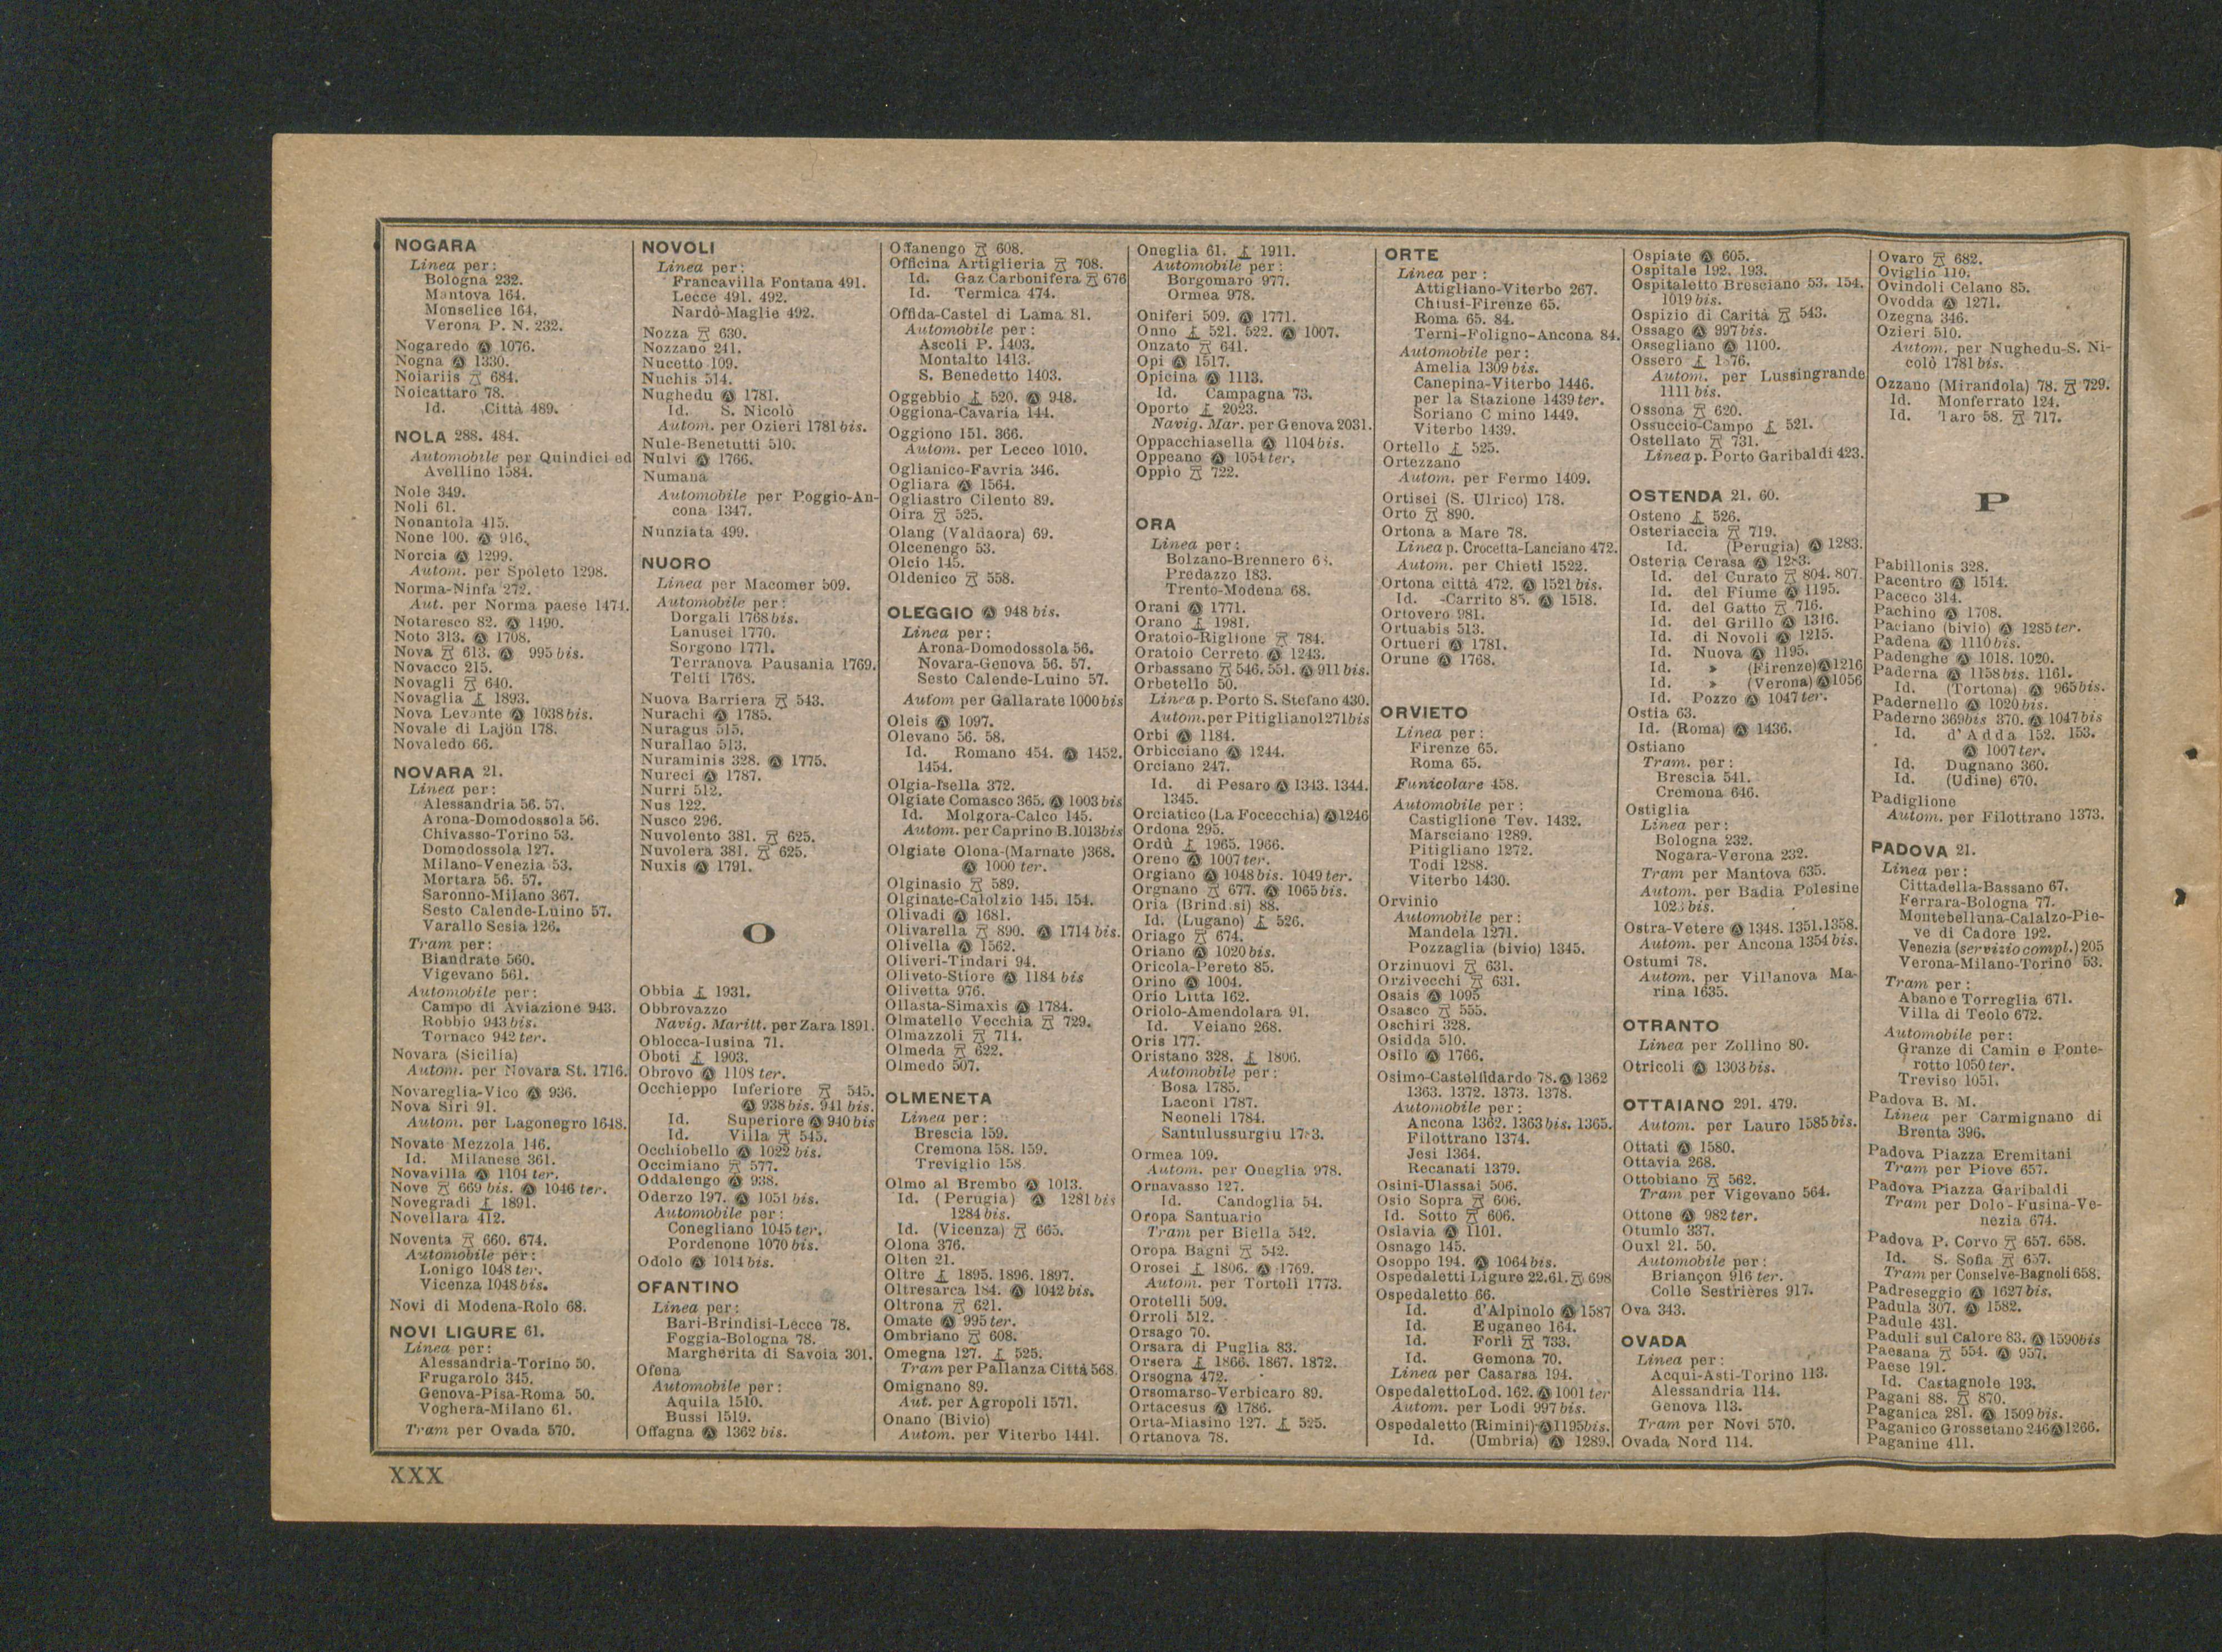 NOGARA
Linea per:
Bologna 232.
Mantova 164.
Monselice 164.
Verona P. N. 232.
Nogaredo Ⓐ 1076.
Nogna Ⓐ 1330.
Noiariis 684.
Noicattaro 78.
Id. Città 489.
NOLA 288. 484.
Automobile per Quindici ed
Avellino 1584.
Nole 349.
Noli 61.
Nonantola 415.
None 100. Ⓐ 916.
Norcia Ⓐ 1299.
Autom. per Spoleto 1298.
Norma-Ninfa 272.
Aut. per Norma paese 1474.
Notaresco 82. Ⓐ 1490.
Noto 313. Ⓐ 1708.
Nova 613. Ⓐ 995 bis.
Novacco 215.
Novagli 640.
Novaglia 1893.
Nova Levante Ⓐ 1038 bis.
Novale di Lajon 178.
Novaledo 66.
NOVARA 21.
Linea per:
Alessandria 56. 57.
Arona-Domodossola 56.
Chivasso-Torino 53.
Domodossola 127.
Milano-Venezia 53.
Mortara 56. 57.
Saronno-Milano 367.
Sesto Calende-Luino 57.
Varallo Sesia 126.
Tram per:
Biandrate 560.
Vigevano 561.
Automobile per:
Campo di Aviazione 943.
Robbio 943 bis.
Tornaco 942 ter.
Novara (Sicilia)
Autom. per Novara St. 1716.
Novareglia-Vico Ⓐ 936.
Nova Siri 91.
Autom. per Lagonegro 1648.
Novate Mezzola 146.
Id. Milanese 361.
Novavilla Ⓐ 1104 ter.
Nove 669 bis. Ⓐ 1046 ter.
Novegradi 1891.
Novellara 412.
Noventa 660. 674.
Automobile per:
Lonigo 1048 ter.
Vicenza 1048 bis.
Novi di Modena-Rolo 68.
NOVI LIGURE 61.
Linea per:
Alessandria-Torino 50.
Frugarolo 345.
Genova-Pisa-Roma 50.
Voghera-Milano 61.
Tram per Ovada 570.
NOVOLI
Linea per:
Francavilla Fontana 491.
Lecce 491. 492.
Nardò-Maglie 492.
Nozza 630.
Nozzano 241.
Nucetto 109.
Nuchis 514.
Nughedu Ⓐ 1781.
Id. S. Nicolò
Autom. per Ozieri 1781 bis.
Nule-Benetutti 510.
Nulvi Ⓐ 1766.
Numana
Automobile per Poggio-An-
cona 1347.
Nunziata 499.
NUORO
Linea per Macomer 509.
Automobile per:
Dorgali 1768 bis.
Lanusei 1770.
Sorgono 1771.
Terranova Pausania 1769.
Telti 1768.
Nuova Barriera 543.
Nurachi Ⓐ 1785.
Nuragus 515.
Nurallao 513.
Nuraminis 328. Ⓐ 1775.
Nureci Ⓐ 1787.
Nurri 512.
Nus 122.
Nusco 296.
Nuvolento 381. 625.
Nuvolera 381. 625.
Nuxis Ⓐ 1791.
O
Obbia 1931.
Obbrovazzo
Navig. Maritt. per Zara 1891.
Oblocca-Iusina 71.
Oboti 1903.
Obrovo Ⓐ 1108 ter.
Occhieppo Inferiore 545.
Ⓐ 938 bis. 941 bis.
Id. Superiore Ⓐ 940 bis
Id. Villa 545.
Occhiobello Ⓐ 1022 bis.
Occimiano 577.
Oddalengo Ⓐ 938.
Oderzo 197. Ⓐ 1051 bis.
Automobile per:
Conegliano 1045 ter.
Pordenone 1070 bis.
Odolo Ⓐ 1014 bis.
OFANTINO
Linea per:
Bari-Brindisi-Lecce 78.
Foggia-Bologna 78.
Margherita di Savoia 301.
Ofena
Automobile per:
Aquila 1510.
Bussi 1519.
Offagna Ⓐ 1362 bis.
Offanengo 608.
Officina Artiglieria 708.
Id. Gaz Carbonifera 676
Id. Termica 474.
Offida-Castel di Lama 81.
Automobile per:
Ascoli P. 1403.
Montalto 1413.
S. Benedetto 1403.
Oggebbio 520. Ⓐ 948.
Oggiona-Cavaria 144.
Oggiono 151. 366.
Autom. per Lecco 1010.
Oglianico-Favria 346.
Ogliara Ⓐ 1564.
Ogliastro Cilento 89.
Oira 525.
Olang (Valdaora) 69.
Olcenengo 53.
Olcio 145.
Oldenico 558.
OLEGGIO Ⓐ 948 bis.
Linea per:
Arona-Domodossola 56.
Novara-Genova 56. 57.
Sesto Calende-Luino 57.
Autom per Gallarate 1000 bis
Oleis Ⓐ 1097.
Olevano 56. 58.
Id. Romano 454. Ⓐ 1452.
1454.
Olgia-Isella 372.
Olgiate Comasco 365. Ⓐ 1003 bis
Id. Molgora-Calco 145.
Autom. per Caprino B. 1013 bis
Olgiate Olona-(Marnate )368.
Ⓐ 1000 ter.
Olginasio 589.
Olginate-Calolzio 145. 154.
Olivadi Ⓐ 1681.
Olivarella 890. Ⓐ 1714 bis.
Olivella Ⓐ 1562.
Oliveri-Tindari 94.
Oliveto-Stiore Ⓐ 1184 bis
Olivetta 976.
Ollasta-Simaxis Ⓐ 1784.
Olmatello Vecchia 729.
Olmazzoli 714.
Olmeda 622.
Olmedo 507.
OLMENETA
Linea per:
Brescia 159.
Cremona 158. 159.
Treviglio 158.
Olmo al Brembo Ⓐ 1013.
Id. (Perugia) Ⓐ 1281 bis
1284 bis.
Id. (Vicenza) 665.
Olona 376.
Olten 21.
Oltre 1895. 1896. 1897.
Oltresarca 184. Ⓐ 1042 bis.
Oltrona 621.
Omate Ⓐ 995 ter.
Ombriano 608.
Omegna 127. 525.
Tram per Pallanza Città 568.
Omignano 89.
Aut. per Agropoli 1571.
Onano (Bivio)
Autom. per Viterbo 1441.
Oneglia 61. 1911.
Automobile per:
Borgomaro 977.
Ormea 978.
Oniferi 509. Ⓐ 1771.
Onno 521. 522. Ⓐ 1007.
Onzato 641.
Opi Ⓐ 1517.
Opicina Ⓐ 1113.
Id. Campagna 73.
Oporto 2023.
Navig. Mar. per Genova 2031.
Oppacchiasella Ⓐ 1104 bis.
Oppeano Ⓐ 1054 ter.
Oppio 722.
ORA
Linea per:
Bolzano-Brennero 68.
Predazzo 183.
Trento-Modena 68.
Orani Ⓐ 1771.
Orano 1981.
Oratoio-Riglione 784.
Oratoio Cerreto Ⓐ 1243.
Orbassano 546. 551. Ⓐ 911 bis.
Orbetello 50.
Linea p. Porto S. Stefano 430.
Autom. per Pitigliano 1271 bis
Orbi Ⓐ 1184.
Orbicciano Ⓐ 1244.
Orciano 247.
Id. di Pesaro Ⓐ 1343. 1344.
1345.
Orciatico (La Focecchia) Ⓐ 1246
Ordona 295.
Ordù 1965. 1966.
Oreno Ⓐ 1007 ter.
Orgiano Ⓐ 1048 bis. 1049 ter.
Orgnano 677. Ⓐ 1065 bis.
Oria (Brindisi) 88.
Id. (Lugano) 526.
Oriago 674.
Oriano Ⓐ 1020 bis.
Oricola-Pereto 85.
Orino Ⓐ 1004.
Orio Litta 162.
Oriolo-Amendolara 91.
Id. Veiano 268.
Oris 177.
Oristano 328. 1806.
Automobile per:
Bosa 1785.
Laconi 1787.
Neoneli 1784.
Santulussurgiu 1783.
Ormea 109.
Autom. per Oneglia 978.
Ornavasso 127.
Id. Candoglia 54.
Oropa Santuario
Tram per Biella 542.
Oropa Bagni 542.
Orosei 1806. Ⓐ 1769.
Autom. per Tortolì 1773.
Orotelli 509.
Orroli 512.
Orsago 70.
Orsara di Puglia 83.
Orsera 1866. 1867. 1872.
Orsogna 472.
Orsomarso-Verbicaro 89.
Ortacesus Ⓐ 1786.
Orta-Miasino 127. 525.
Ortanova 78.
ORTE
Linea per:
Attigliano-Viterbo 267.
Chiusi-Firenze 65.
Roma 65. 84.
Terni-Foligno-Ancona 84.
Automobile per:
Amelia 1309 bis.
Canepina-Viterbo 1446.
per la Stazione 1439 ter.
Soriano C mino 1449.
Viterbo 1439.
Ortello 525.
Ortezzano
Autom. per Fermo 1409.
Ortisei (S. Ulrico) 178.
Orto 890.
Ortona a Mare 78.
Linea p. Crocetta-Lanciano 472.
Autom. per Chieti 1522.
Ortona città 472. Ⓐ 1521 bis.
Id. -Carrito 85. Ⓐ 1518.
Ortovero 981.
Ortuabis 513.
Ortueri Ⓐ 1781.
Orune Ⓐ 1768.
ORVIETO
Linea per:
Firenze 65.
Roma 65.
Funicolare 458.
Automobile per:
Castiglione Tev. 1432.
Marsciano 1289.
Pitigliano 1272.
Todi 1288.
Viterbo 1430.
Orvinio
Automobile per:
Mandela 1271.
Pozzaglia (bivio) 1345.
Orzinuovi 631.
Orzivecchi 631.
Osais Ⓐ 1095
Osasco 555.
Oschiri 328.
Osidda 510.
Osilo Ⓐ 1766.
Osimo-Castelfidardo 78. Ⓐ 1362
1363. 1372. 1373. 1378.
Automobile per:
Ancona 1362. 1363 bis. 1365.
Filottrano 1374.
Jesi 1364.
Recanati 1379.
Osini-Ulassai 506.
Osio Sopra 606.
Id. Sotto 606.
Oslavia Ⓐ 1101.
Osnago 145.
Osoppo 194. Ⓐ 1064 bis.
Ospedaletti Ligure 22.61. 698
Ospedaletto 66.
Id. d'Alpinolo Ⓐ 1587
Id. Euganeo 164.
Id. Forlì 733.
Id. Gemona 70.
Linea per Casarsa 194.
Ospedaletto Lod. 162. Ⓐ 1001 ter
Autom. per Lodi 997 bis.
Ospedaletto (Rimini) Ⓐ 1195 bis.
Id. (Umbria) Ⓐ 1289.
Ospiate Ⓐ 605.
Ospitale 192. 193.
Ospitaletto Bresciano 53. 154.
1019 bis.
Ospizio di Carità 543.
Ossago Ⓐ 997 bis.
Ossegliano Ⓐ 1100.
Ossero
Autom. per Lussingrande
1111 bis.
Ossona 620.
Ossuccio-Campo 521.
Ostellato 731.
Linea p. Porto Garibaldi 423.
OSTENDA 21. 60.
Osteno 526.
Osteriaccia 719.
Id. (Perugia) Ⓐ 1283.
Osteria Cerasa Ⓐ 1283.
Id. del Curato 804. 807.
Id. del Fiume Ⓐ 1195.
Id. del Gatto 716.
Id. del Grillo Ⓐ 1316.
Id. di Novoli Ⓐ 1215.
Id. Nuova Ⓐ 1195.
Id. » (Firenze) Ⓐ 1216
Id. » (Verona) Ⓐ 1056
Id. Pozzo Ⓐ 1047 ter.
Ostia 63.
Id. (Roma) Ⓐ 1436.
Ostiano
Tram. per:
Brescia 541.
Cremona 646.
Ostiglia
Linea per:
Bologna 232.
Nogara-Verona 232.
Tram per Mantova 635.
Autom. per Badia Polesine
1023 bis.
Ostra-Vetere Ⓐ 1348. 1351. 1358.
Autom. per Ancona 1354 bis.
Ostuni 78.
Autom. per Villanova Ma-
rina 1635.
OTRANTO
Linea per Zollino 80.
Otricoli Ⓐ 1303 bis.
OTTAIANO 291. 479.
Autom. per Lauro 1585 bis.
Ottati Ⓐ 1580.
Ottavia 268.
Ottobiano 562.
Tram per Vigevano 564.
Ottone Ⓐ 982 ter.
Otumlo 337.
Ouxl 21. 50.
Automobile per:
Briançon 916 ter.
Colle Sestrières 917.
Ova 343.
OVADA
Linea per:
Acqui-Asti-Torino 113.
Alessandria 114.
Genova 113.
Tram per Novi 570.
Ovada Nord 114.
Ovaro 682.
Oviglio 110.
Ovindoli Celano 85.
Ovodda Ⓐ 1271.
Ozegna 346.
Ozieri 510.
Autom. per Nughedu-S. Ni-
colò 1781 bis.
Ozzano (Mirandola) 78. 729.
Id. Monferrato 124.
Id. Taro 58. 717.
P
Pabillonis 328.
Pacentro Ⓐ 1514.
Paceco 314.
Pachino Ⓐ 1708.
Paciano (bivio) Ⓐ 1285 ter.
Padena Ⓐ 1110 bis.
Padenghe Ⓐ 1018. 1020.
Paderna Ⓐ 1158 bis. 1161.
Id. (Tortona) Ⓐ 965 bis.
Padernello Ⓐ 1020 bis.
Paderno 369 bis 370. Ⓐ 1047 bis
Id. d'Adda 152. 153.
Ⓐ 1007 ter.
Id. Dugnano 360.
Id. (Udine) 670.
Padiglione
Autom. per Filottrano 1373.
PADOVA 21.
Linea per:
Cittadella-Bassano 67.
Ferrara-Bologna 77.
Montebelluna-Calalzo-Pie-
ve di Cadore 192.
Venezia (servizio compl.) 205
Verona-Milano-Torino 53.
Tram per:
Abano e Torreglia 671.
Villa di Teolo 672.
Automobile per:
Granze di Camin e Ponte-
rotto 1050 ter.
Treviso 1051.
Padova B. M.
Linea per Carmignano di
Brenta 396.
Padova Piazza Eremitani
Tram per Piove 657.
Padova Piazza Garibaldi
Tram per Dolo-Fusina-Ve-
nezia 674.
Padova P. Corvo 657. 658.
Id. S. Sofia 657.
Tram per Conselve-Bagnoli 658.
Padreseggio Ⓐ 1627 bis.
Padula 307. Ⓐ 1582.
Padule 431.
Paduli sul Calore 83. Ⓐ 1590 bis
Paesana 554. Ⓐ 957.
Paese 191.
Id. Castagnole 193.
Pagani 88. 870.
Paganica 281. Ⓐ 1509 bis.
Paganico Grossetano 246 Ⓐ 1266.
Paganine 411.
XXX